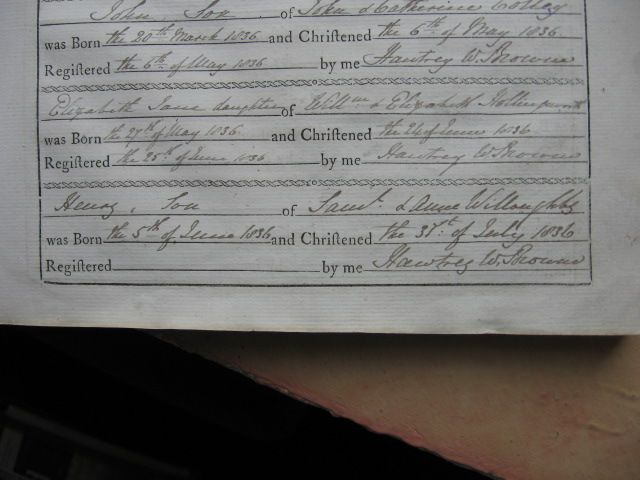 John, Son of John & Catherine
was Born the 20th March 1836 and Chriſtened the 6th of May 1836
Regiſtered the 6th of May 1836 by me Hawtrey W. Browne
Elizabeth Jane daughter of Willm & Elizabeth
was Born the 27th of May 1836 and Chriſtened the 26 of June 1836
Regiſtered the 28th of June 1836 by me Hawtrey W Browne
Henry, Son of Saml. & Anne Willoughby
was Born the 5th of June 1836 and Chriſtened the 31st of July 1836
Regiſtered by me Hawtrey W. Browne